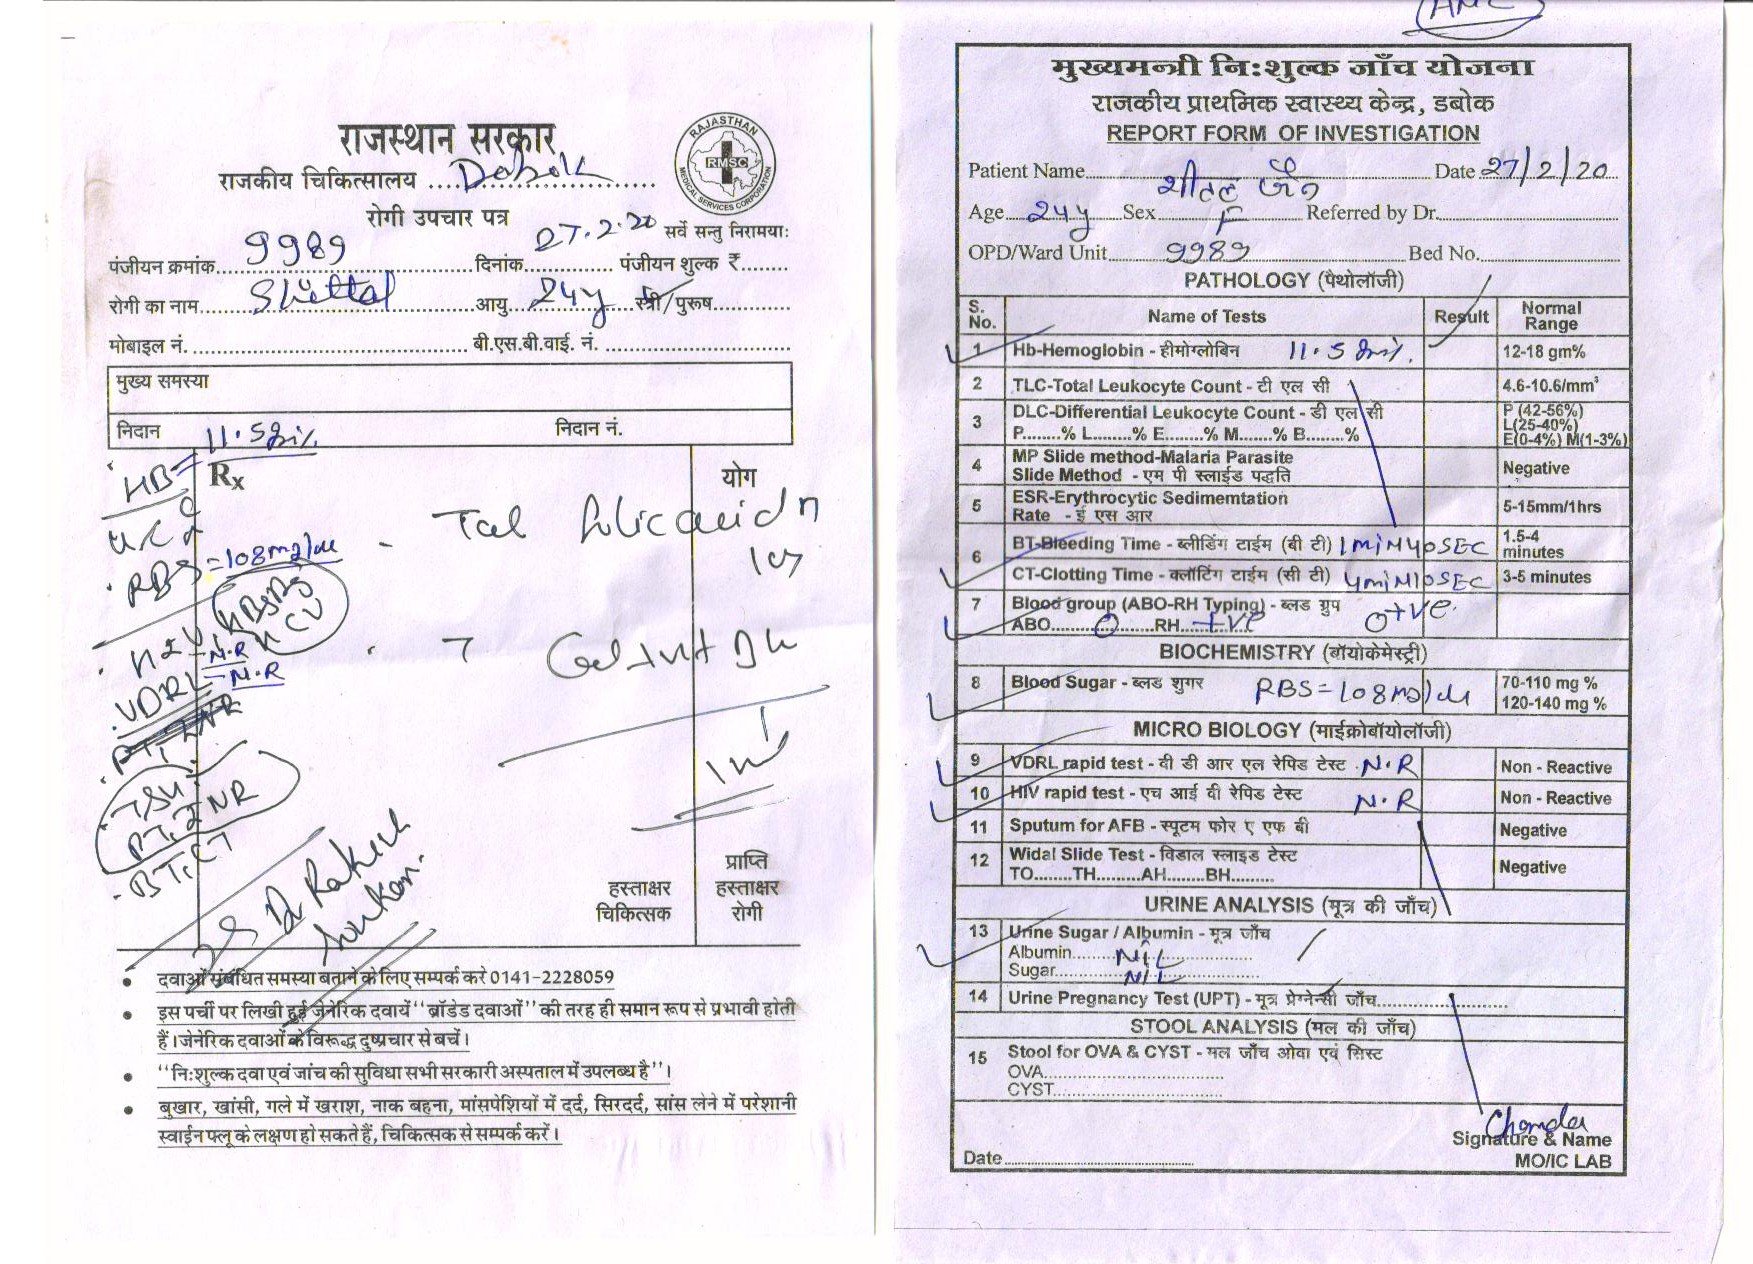 राजस्थान सरकार
RAJASTHAN
RMSC
MEDICAL SERVICES CORPORATION
राजकीय चिकित्सालय .... Dabok
रोगी उपचार पत्र
सर्वे सन्तु निरामयाः
पंजीयन क्रमांक 9989 दिनांक 27.2.20 पंजीयन शुल्क ₹........
रोगी का नाम Sheetal आयु 24y स्त्री/पुरूष
मोबाइल नं. बी.एस.बी.वाई. नं.
मुख्य समस्या
निदान निदान नं.
HB= 11.5gm%
Rx
योग
RBS=108mg/dl
HBsAg
HCV
HIV - N.R
VDRL - N.R
TSH
PT, INR
BT, CT
- Tab folic acid
Dr Rakesh
हस्ताक्षर
चिकित्सक
प्राप्ति
हस्ताक्षर
रोगी
• दवाओं संबंधित समस्या बताने के लिए सम्पर्क करे 0141-2228059
• इस पर्ची पर लिखी हुई जेनेरिक दवायें "ब्रॉडेड दवाओं" की तरह ही समान रूप से प्रभावी होती
हैं। जेनेरिक दवाओं के विरूद्ध दुष्प्रचार से बचें।
• "निःशुल्क दवा एवं जांच की सुविधा सभी सरकारी अस्पताल में उपलब्ध है"।
• बुखार, खांसी, गले में खराश, नाक बहना, मांसपेशियों में दर्द, सिरदर्द, सांस लेने में परेशानी
स्वाईन फ्लू के लक्षण हो सकते हैं, चिकित्सक से सम्पर्क करें।
ANC
मुख्यमन्त्री निःशुल्क जाँच योजना
राजकीय प्राथमिक स्वास्थ्य केन्द्र, डबोक
REPORT FORM OF INVESTIGATION
Patient Name शीतल जैन Date 27/2/20
Age 24y Sex F Referred by Dr.
OPD/Ward Unit 9989 Bed No.
PATHOLOGY (पैथोलॉजी)
S. No. Name of Tests Result Normal Range
1 Hb-Hemoglobin - हीमोग्लोबिन 11.5 gm% 12-18 gm%
2 TLC-Total Leukocyte Count - टी एल सी 4.6-10.6/mm³
3 DLC-Differential Leukocyte Count - डी एल सी P (42-56%)
P........% L........% E........% M.......% B........% L(25-40%)
E(0-4%) M(1-3%)
4 MP Slide method-Malaria Parasite
Slide Method - एम पी स्लाईड पद्धति Negative
5 ESR-Erythrocytic Sedimemtation
Rate - ई एस आर 5-15mm/1hrs
6 BT-Bleeding Time - ब्लीडिंग टाईम (बी टी) 1 MiN 40 SEC 1.5-4 minutes
CT-Clotting Time - क्लॉटिंग टाईम (सी टी) 4 MiN 10 SEC 3-5 minutes
7 Blood group (ABO-RH Typing) - ब्लड ग्रुप O+ve
ABO O RH +ve
BIOCHEMISTRY (बॉयोकेमेस्ट्री)
8 Blood Sugar - ब्लड शुगर RBS=108mg/dl 70-110 mg %
120-140 mg %
MICRO BIOLOGY (माईक्रोबॉयोलॉजी)
9 VDRL rapid test - वी डी आर एल रेपिड टेस्ट N.R Non - Reactive
10 HIV rapid test - एच आई वी रेपिड टेस्ट N.R Non - Reactive
11 Sputum for AFB - स्पूटम फोर ए एफ बी Negative
12 Widal Slide Test - विडाल स्लाइड टेस्ट Negative
TO........TH........AH.......BH.........
URINE ANALYSIS (मूत्र की जाँच)
13 Urine Sugar / Albumin - मूत्र जाँच
Albumin NIL
Sugar NIL
14 Urine Pregnancy Test (UPT) - मूत्र प्रेग्नेन्सी जाँच
STOOL ANALYSIS (मल की जाँच)
15 Stool for OVA & CYST - मल जाँच ओवा एवं सिस्ट
OVA
CYST
Chanda
Signature & Name
Date MO/IC LAB